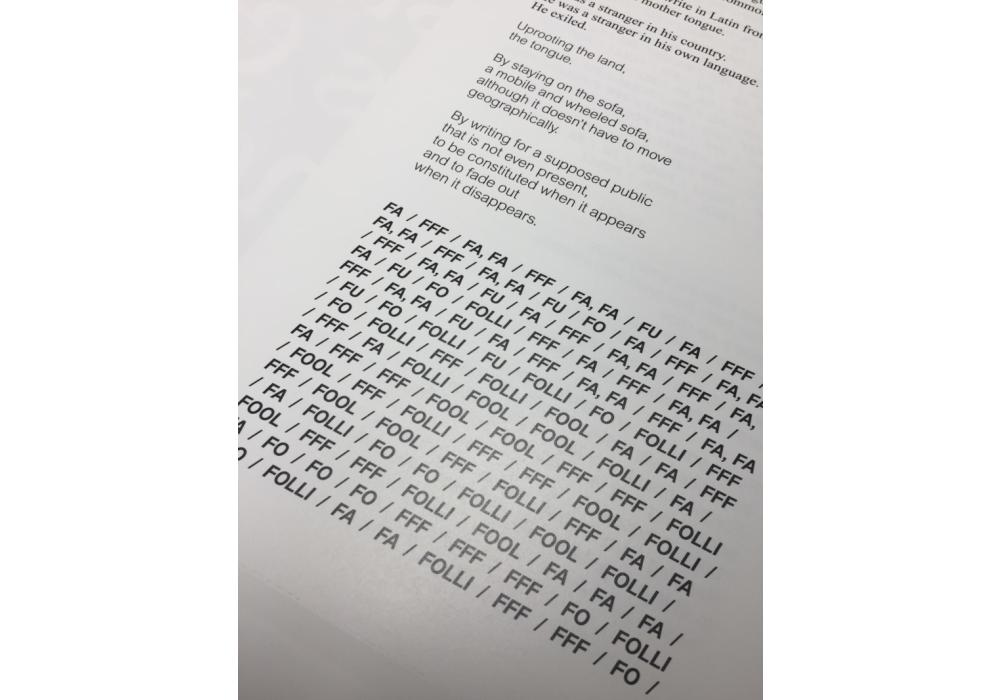 write in Latin
mother tongue.
was a stranger in his country.
He was a stranger in his own language.
He exiled.
Uprooting the land,
the tongue.
By staying on the sofa,
a mobile and wheeled sofa,
although it doesn't have to move
geographically.
By writing for a supposed public
that is not even present,
to be constituted when it appears
and to fade out
when it disappears.
FA / FFF / FA, FA / FFF / FA, FA / FU / FA / FFF /
FA, FA / FFF / FA, FA / FU / FO / FA / FFF / FA, FA
/ FFF / FA, FA / FU / FA / FFF / FA, FA / FFF / FA,
FA / FU / FO / FOLLI / FFF / FA / FFF / FA, FA /
FFF / FA, FA / FU / FA / FFF / FA, FA / FFF / FA, FA
/ FU / FO / FOLLI / FU / FOLLI / FO / FOLLI / FFF
/ FO / FOLLI / FFF / FOLLI / FOOL / FA / FA / FFF
/ FFF / FA / FOLLI / FOOL / FOOL / FOLLI / FA /
FA / FFF / FFF / FOOL / FOOL / FFF / FFF / FOLLI
/ FOOL / FFF / FOLLI / FFF / FFF / FOOL / FOLLI /
FFF / FOOL / FOOL / FFF / FOLLI / FFF / FA / FA
/ FA / FOLLI / FO / FO / FOLLI / FOOL / FOLLI /
FOOL / FFF / FFF / FOLLI / FOOL / FA / FA / FA /
/ FO / FO / FO / FFF / FFF / FFF / FO / FOLLI
/ FOLLI / FA / FA / FOLLI / FFF / FFF / FO /